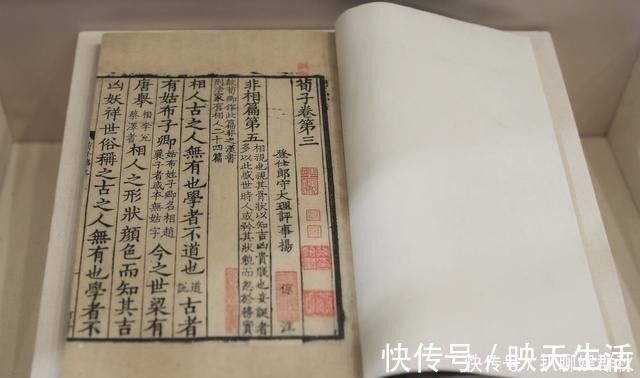 荀子卷第三
登仕郎守大理評事楊 倞 注
非相篇第五 相視也視其骨狀以知吉凶貴賤也妄誕者
多以此惑世時人或矜其狀貌而忽於務實
故荀卿作此篇非之漢書
刑法家有相人二十四篇
相人古之人無有也學者不道也 道說 古者
有姑布子卿 姑布姓子卿名相趙襄子者或本無姑字 今之世梁有
唐舉 相李兌蔡澤者 相人之形狀顏色而知其吉
凶妖祥世俗稱之古之人無有也學者不
快传号 / 映天生活